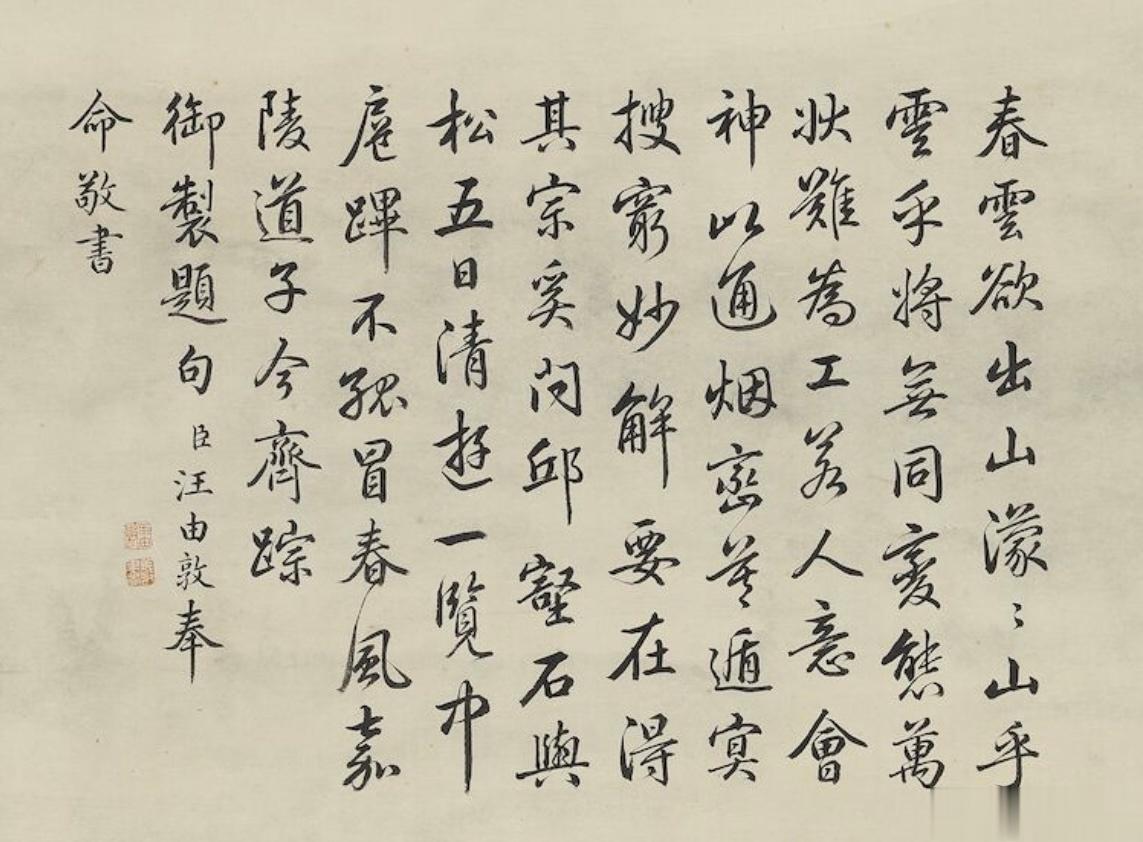 春雲欲出山濛〻山乎
雲乎将無同變態萬
狀難為工若人意會
神以通烟巒苍遁寞
搜窮妙解要在得
其宗奚问邱壑石與
松五日清逰一覽中
扈蹕不孤冒春風嘉
陵道子今齊踪
御製題句臣汪由敦奉
命敬書